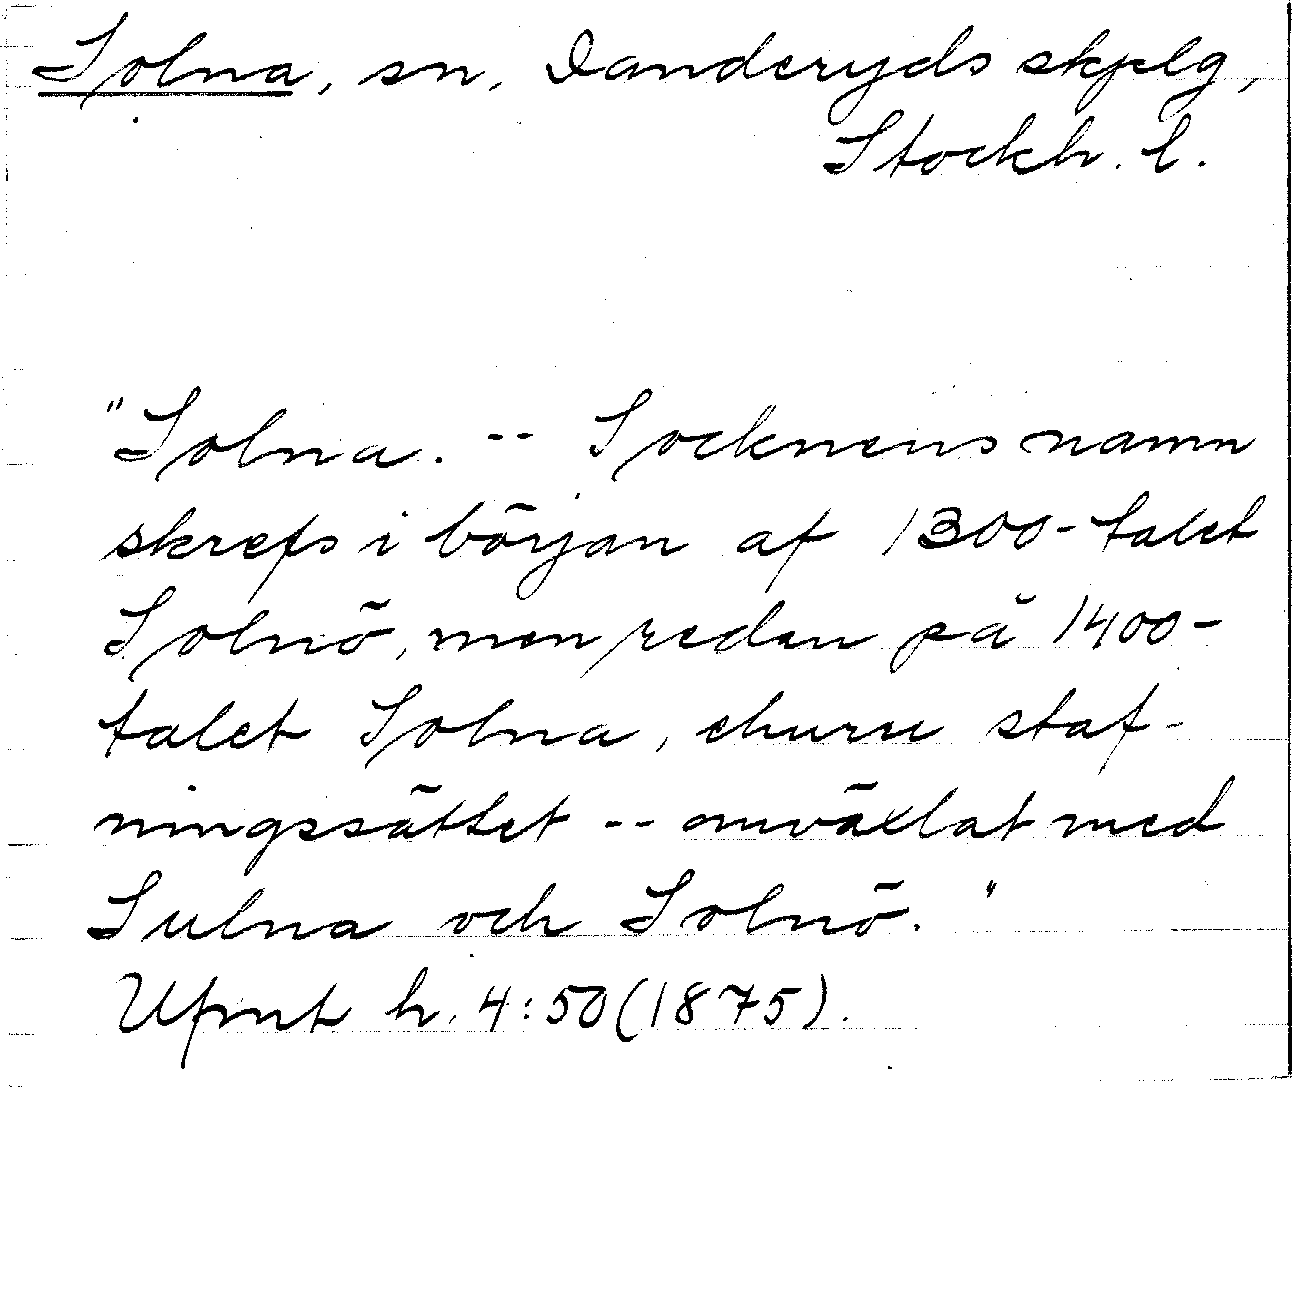 Solna, sn, Danderyds skplg,
Stockh. l.
"Solna. -- Socknens namn
skrefs i början af 1300-talet
Solnö, men reden på 1400-
talet Solna, churu staf-
ningssättet -- omväxlat med
Sulna och Solnö."
Ufmt h. 4:50 (1875).